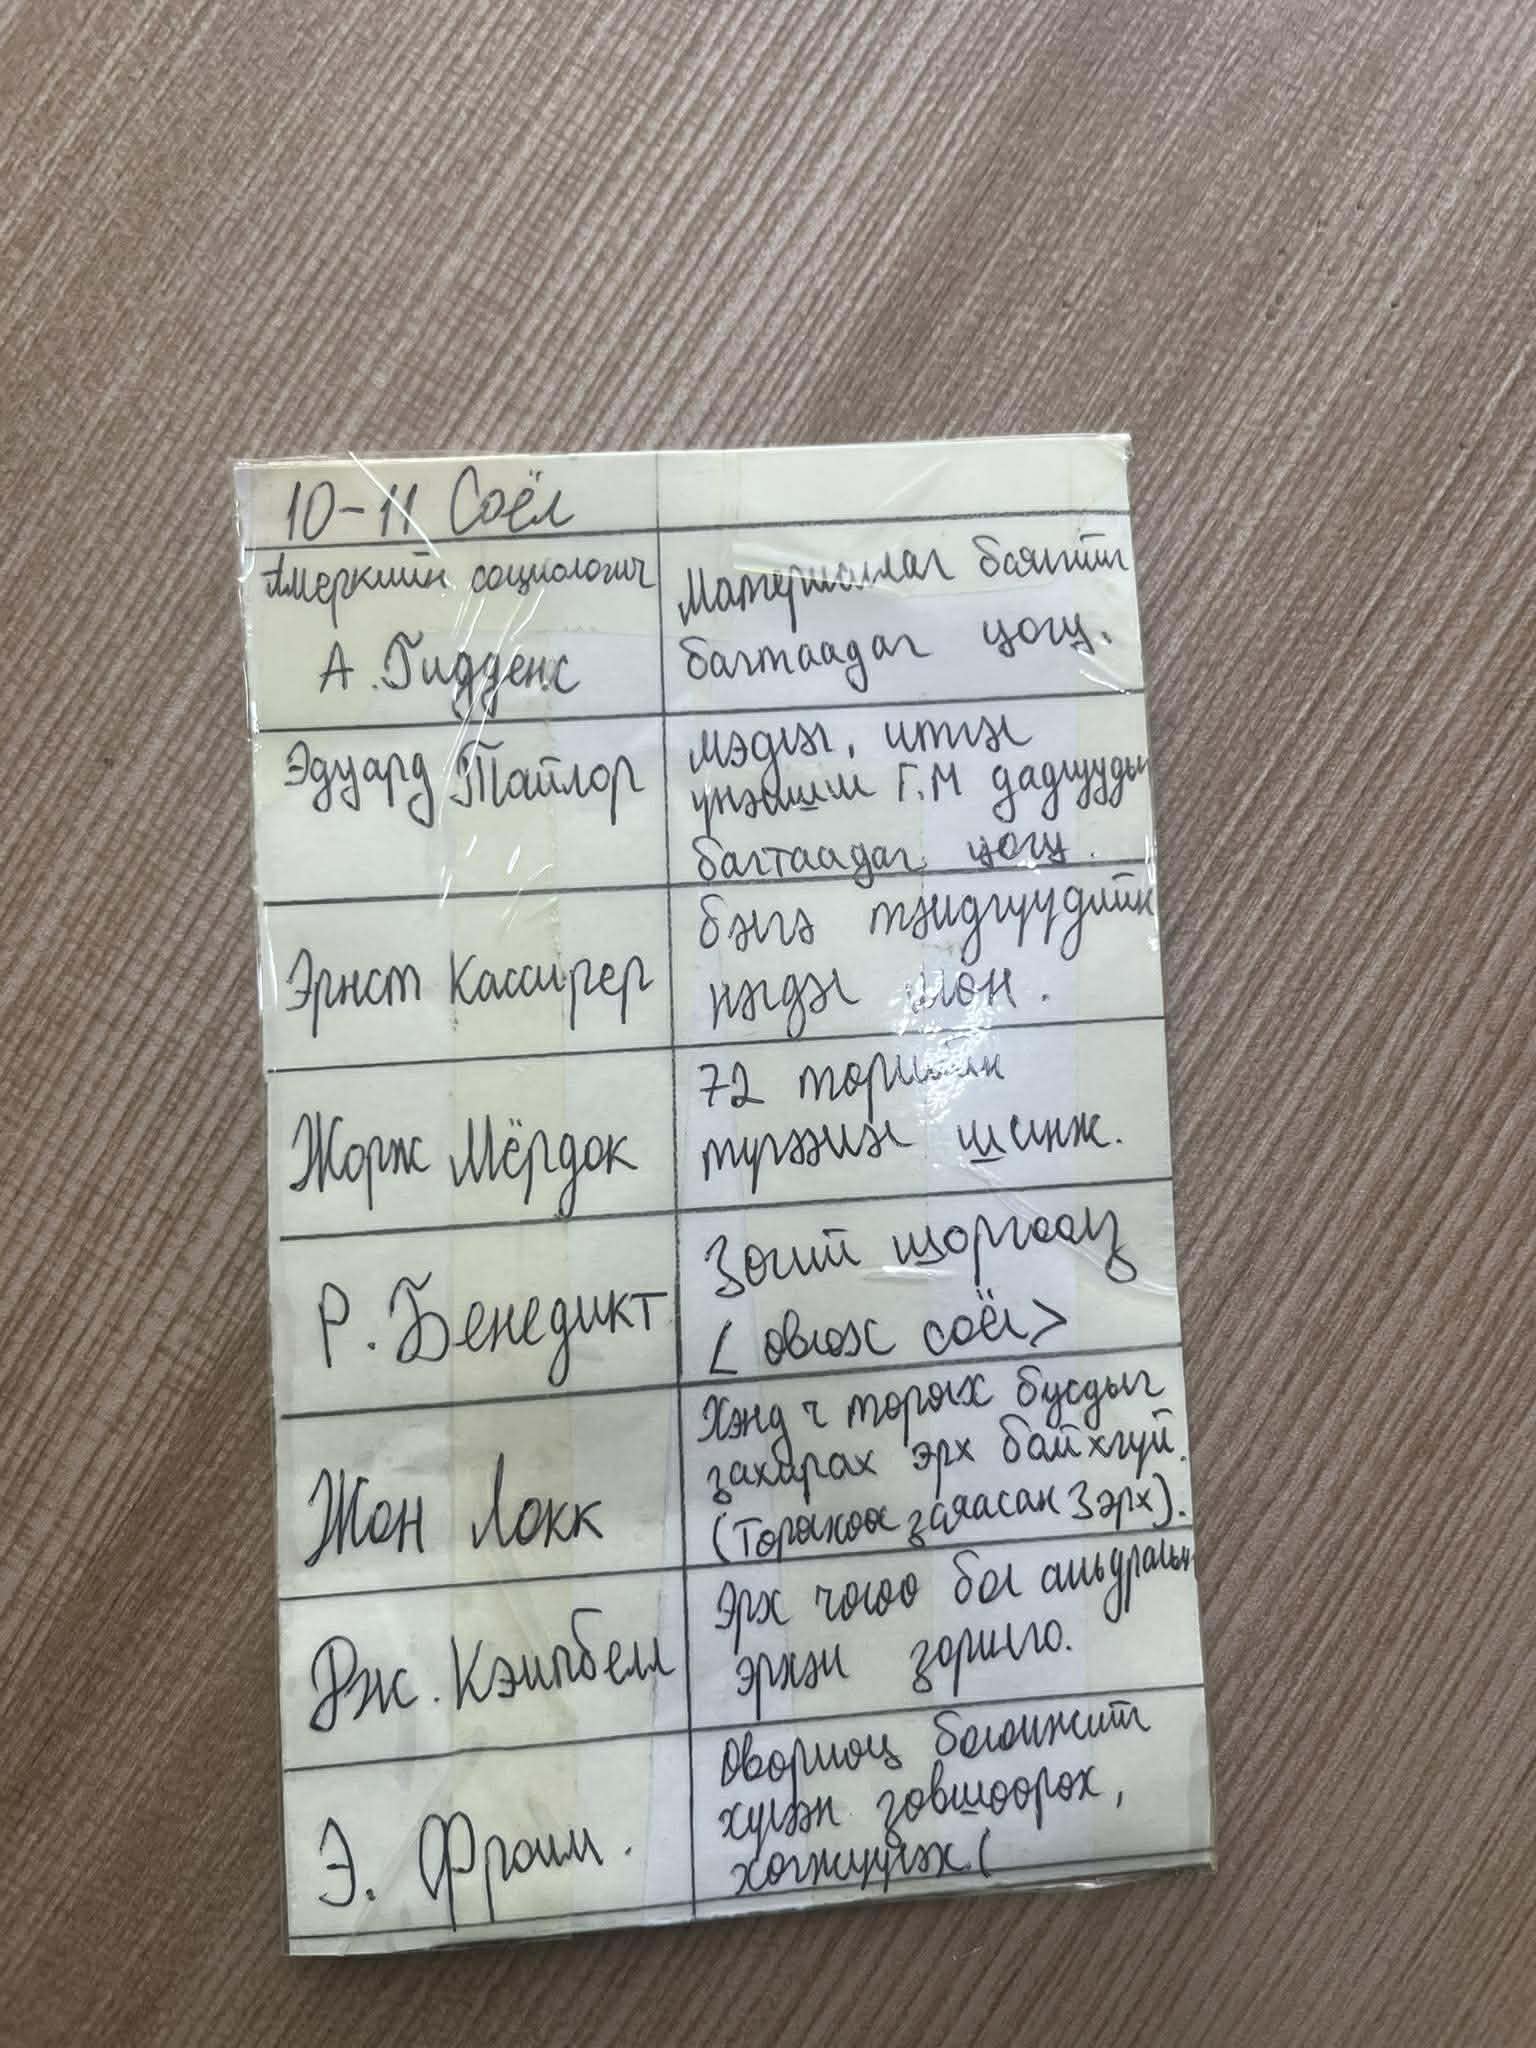 10-11 Соёл
Амеркийн социологич
А. Гидденс
Материаллаг баялгийг
багтаадаг цогц.
Эдуард Тайлор
мэдлэг, итгэл
үнэмшил Г.М дадлуудын
багтаадаг цогц.
Эрнст Кассирер
бэлгэ тэмдгүүдийн
нэгдэл мөн.
Жорж Мёрдок
72 төрлийн
түгээмэл шинж.
Р. Бенедикт
Зөгий шоргоолж
< өвлөх соёл >
Жон Локк
Хэнд ч төрөлх бусдыг
захирах эрх байхгүй.
(Төрөлхөөс заяасан 3 эрх).
Дж. Кэмпбелл
Эрх чөлөө бол амьдралын
эрхэм зорилго.
Э. Фромм.
Өвөрмөц боломжийг
хүлээн зөвшөөрөх,
хөгжүүлэх (